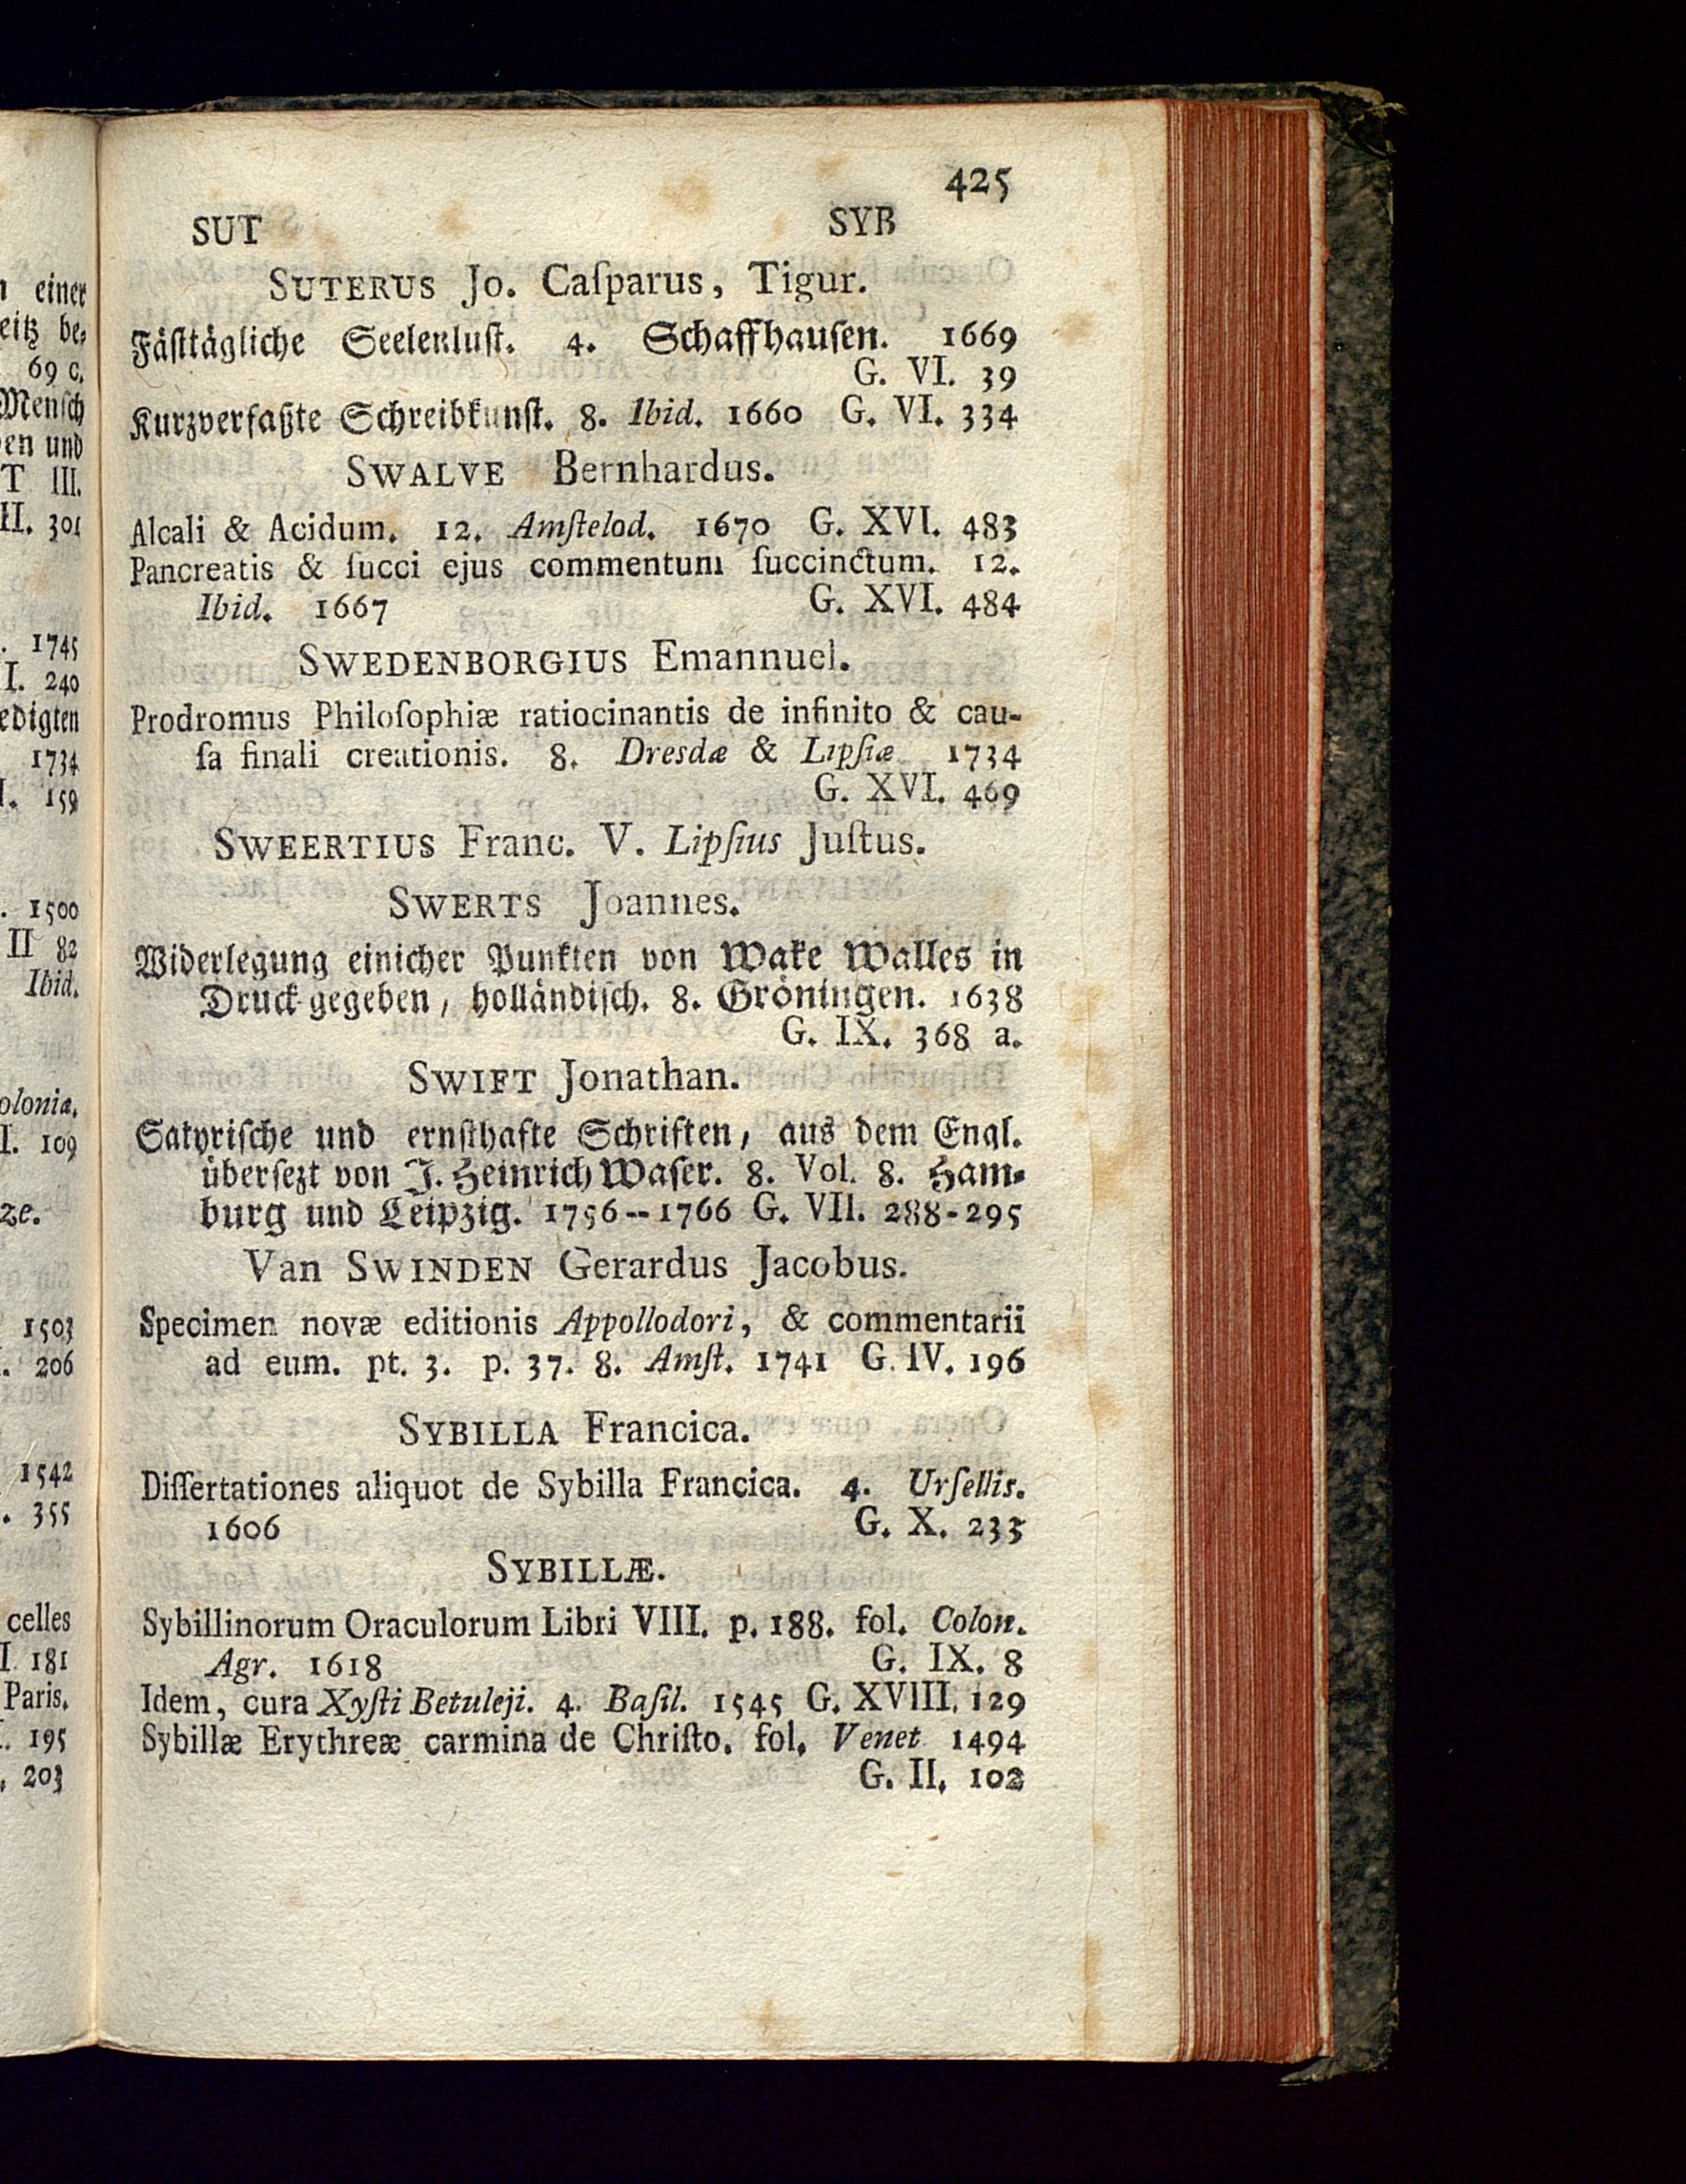 425
SUT SYB
SUTERUS Jo. Caſparus, Tigur.
Fäſttägliche Seelenluſt. 4. Schaffhauſen. 1669
G. VI. 39
Kurzverfaßte Schreibkunſt. 8. Ibid. 1660 G. VI. 334
SWALVE Bernhardus.
Alcali & Acidum. 12. Amſtelod. 1670 G. XVI. 483
Pancreatis & ſucci ejus commentum ſuccinctum. 12.
Ibid. 1667 G. XVI. 484
SWEDENBORGIUS Emannuel.
Prodromus Philoſophiæ ratiocinantis de infinito & cau-
ſa finali creationis. 8. Dresdæ & Lipſiæ 1734
G. XVI. 469
SWEERTIUS Franc. V. Lipſius Juſtus.
SWERTS Joannes.
Widerlegung einicher Punkten von Wake Walles in
Druck gegeben, holländiſch. 8. Gröningen. 1638
G. IX. 368 a.
SWIFT Jonathan.
Satyriſche und ernſthafte Schriften, aus dem Engl.
überſezt von J. Heinrich Waſer. 8. Vol. 8. Ham-
burg und Leipzig. 1756--1766 G. VII. 288-295
Van SWINDEN Gerardus Jacobus.
Specimen novæ editionis Appollodori, & commentarii
ad eum. pt. 3. p. 37. 8. Amſt. 1741 G. IV. 196
SYBILLA Francica.
Diſſertationes aliquot de Sybilla Francica. 4. Urſellis.
1606 G. X. 233
SYBILLÆ.
Sybillinorum Oraculorum Libri VIII. p. 188. fol. Colon.
Agr. 1618 G. IX. 8
Idem, cura Xyſti Betuleji. 4. Baſil. 1545 G. XVIII. 129
Sybillæ Erythreæ carmina de Chriſto. fol. Venet 1494
G. II. 102
einer
be-
69 c.
Menſch
und
T III.
II. 301
1745
I. 240
1734
159
1500
II 82
Ibid.
I. 109
1503
206
1542
355
celles
181
Paris.
195
203